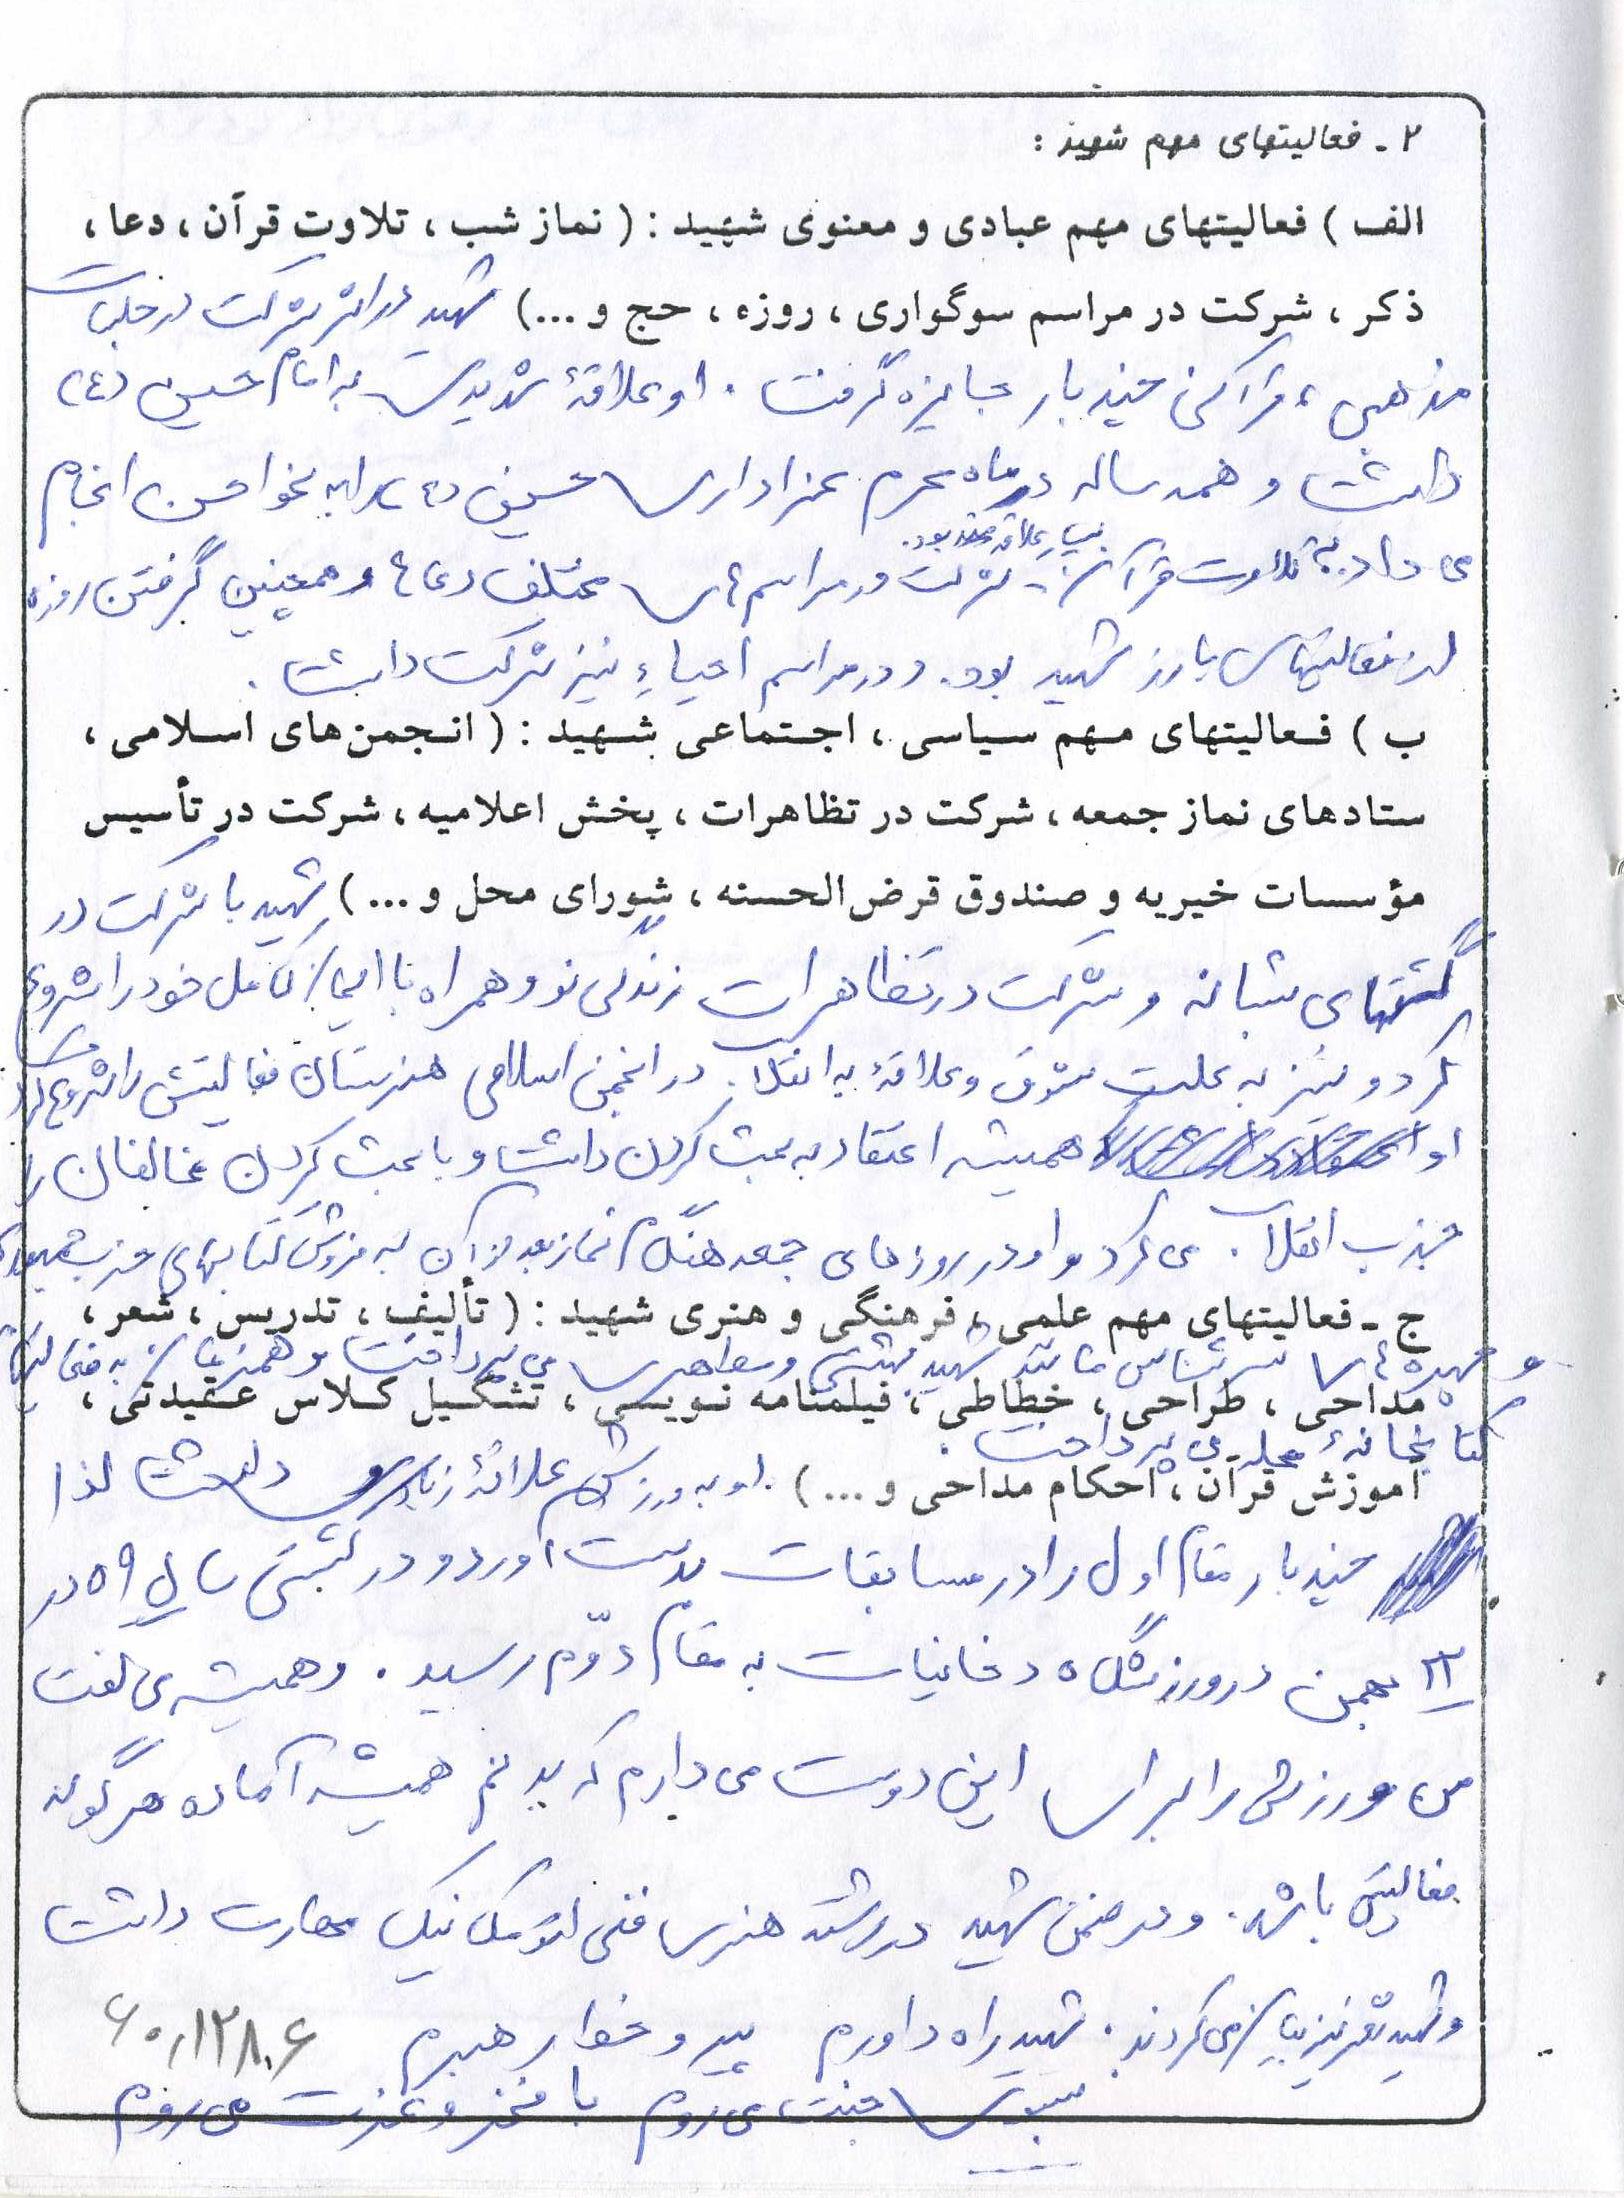 ۲ - فعالیتهای مهم شهید :
الف ) فعالیتهای مهم عبادی و معنوی شهید : ( نماز شب ، تلاوت قرآن ، دعا ،
ذکر ، شرکت در مراسم سوگواری ، روزه ، حج و ...) شهید در اثر شرکت در جلسات
مذهبی ، قرآنی چند بار جایزه گرفت . او علاقهٔ شدیدی به امام حسین (ع)
داشت و همه ساله در ماه محرم عزاداری حسین (ع) را به نحو احسن انجام
بسیار علاقه‌مند بود .
می داد به تلاوت قرآن شرکت در مراسم های مختلف دعا و همچنین گرفتن روزه
از فعالیتهای بارز شهید بود . و در مراسم احیاء نیز شرکت داشت .
ب ) فعالیتهای مهم سیاسی ، اجتماعی شهید : ( انجمن‌های اسلامی ،
ستادهای نماز جمعه ، شرکت در تظاهرات ، پخش اعلامیه ، شرکت در تأسیس
مؤسسات خیریه و صندوق قرض الحسنه ، شورای محل و ... ) شهید با شرکت در
گشتهای شبانه و شرکت در تظاهرات زندگی نو و همراه با ایمان کامل خود را شروع
کرد و نیز به علت شوق و علاقهٔ به انقلاب در انجمن اسلامی هنرستان فعالیتش را شروع کرد
او همیشه اعتقاد به بحث کردن داشت و با بحث کردن مخالفان را
جذب انقلاب می کرد و او در روزهای جمعه هنگام نماز بعد از آن به فروش کتابهای حزب
ج - فعالیتهای مهم علمی ، فرهنگی و هنری شهید : ( تألیف ، تدریس ، شعر ،
و چهره های سرشناس مانند شهید بهشتی و مطاهری می پرداخت و همزمان به
مداحی ، طراحی ، خطاطی ، فیلمنامه نویسی ، تشکیل کلاس عقیدتی ،
کتابخانهٔ محله می پرداخت .
آموزش قرآن ، احکام مداحی و ... ) او به ورزش علاقهٔ زیادی داشت لذا
چند بار مقام اول را در مسابقات بدست آورد و در کشتی سال ۵۹ در
۲۲ بهمن در ورزشگاه دخانیات به مقام دوّم رسید . و همیشه می گفت
من ورزش را برای این دوست می دارم که بدنم همیشه آماده هرگونه
فعالیتی باشد . و در ضمن شهید در رشته هنری فنی اتومکانیک مهارت داشت
و شهید شعر نیز بیان می کردند . شهید راه داورم پیرو خط رهبرم
بسوی جنت می روم با فخر و عزت می روم